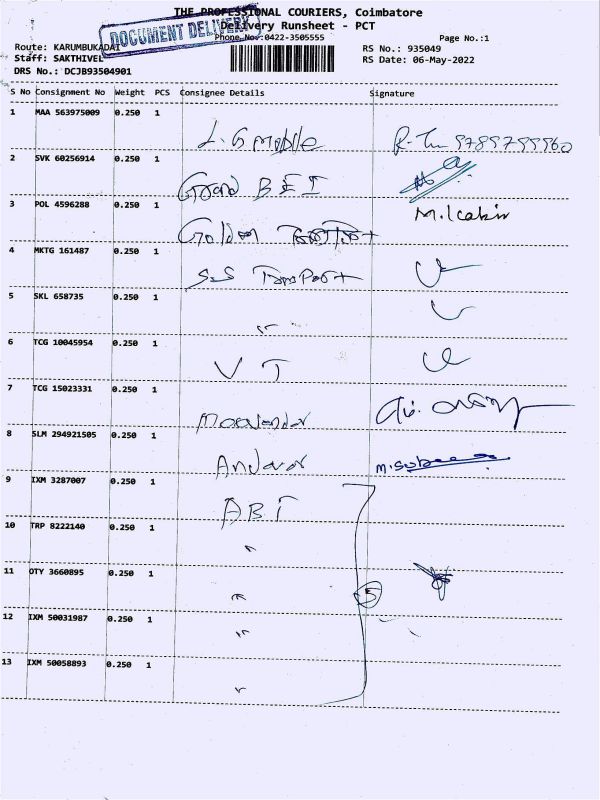 THE PROFESSIONAL COURIERS, Coimbatore
DOCUMENT DELIVERY
Delivery Runsheet - PCT
Phone No.:0422-3505555
Page No.:1
Route: KARUMBUKADAI
RS No.: 935049
Staff: SAKTHIVEL
RS Date: 06-May-2022
DRS No.: DCJB93504901
S No Consignment No Weight PCS Consignee Details Signature
1 MAA 563975009 0.250 1
L.G mobile 9789799960
2 SVK 60256914 0.250 1
3 POL 4596288 0.250 1
M.Kabir
Golden
4 MKTG 161487 0.250 1
SS Transport
5 SKL 658735 0.250 1
"
6 TCG 10045954 0.250 1
V T
7 TCG 15023331 0.250 1
8 SLM 294921505 0.250 1
9 IXM 3287007 0.250 1
ABT
10 TRP 8222140 0.250 1
"
11 OTY 3660895 0.250 1
" 5
12 IXM 50031987 0.250 1
"
13 IXM 50058893 0.250 1
"